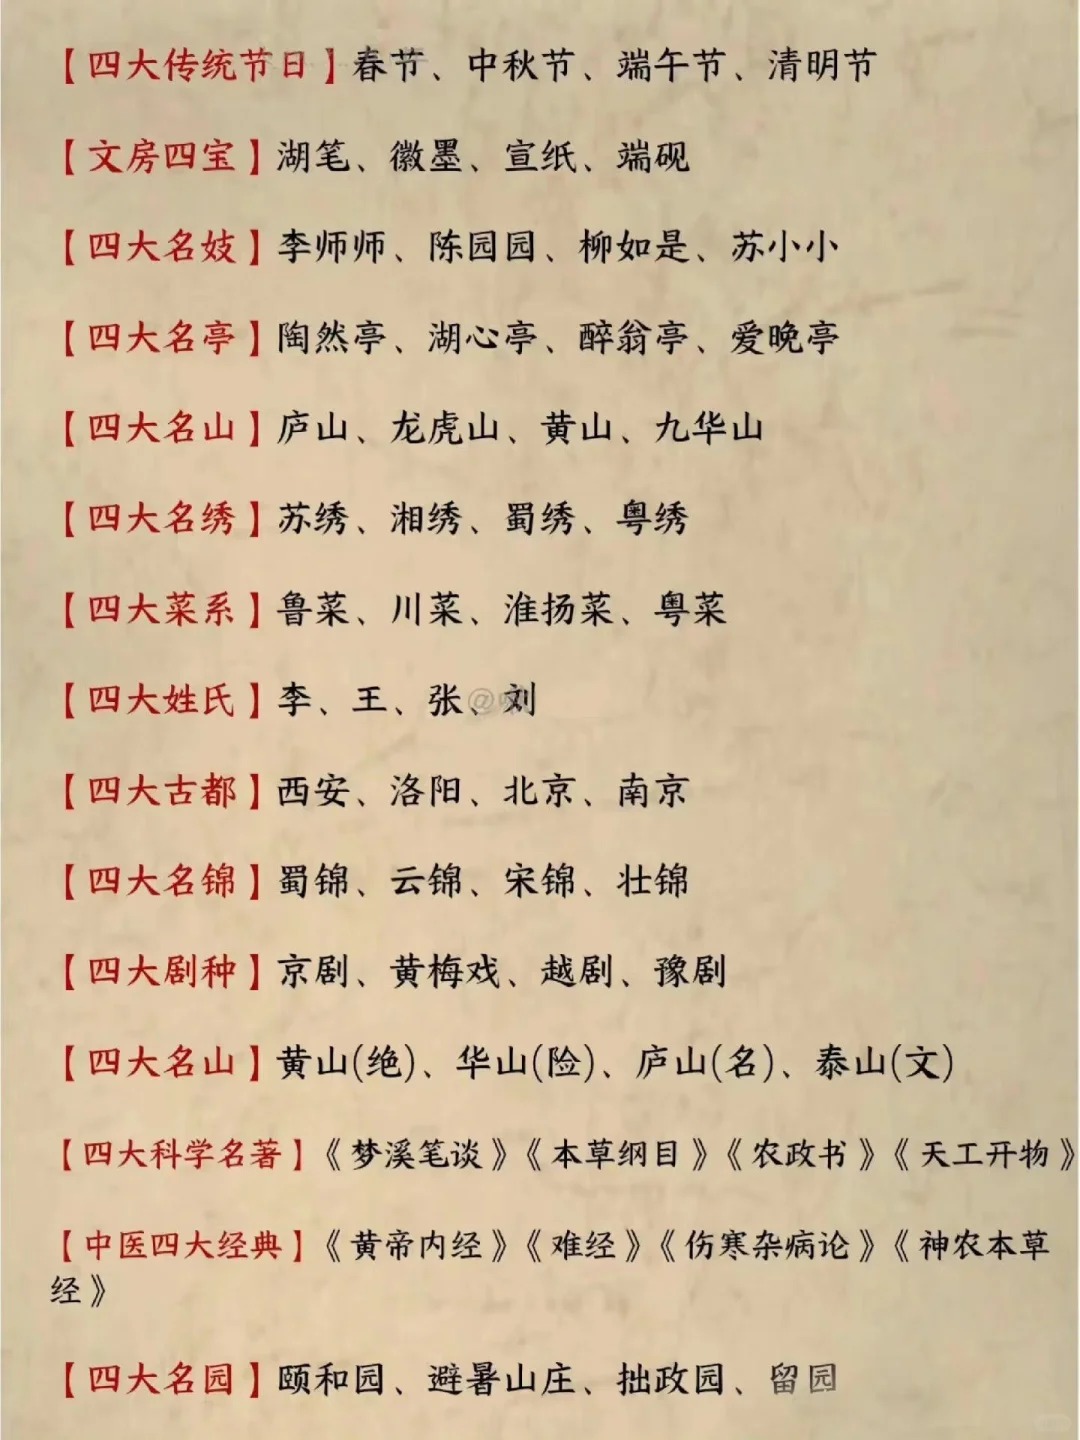 【四大传统节日】春节、中秋节、端午节、清明节
【文房四宝】湖笔、徽墨、宣纸、端砚
【四大名妓】李师师、陈园园、柳如是、苏小小
【四大名亭】陶然亭、湖心亭、醉翁亭、爱晚亭
【四大名山】庐山、龙虎山、黄山、九华山
【四大名绣】苏绣、湘绣、蜀绣、粤绣
【四大菜系】鲁菜、川菜、淮扬菜、粤菜
【四大姓氏】李、王、张、刘
【四大古都】西安、洛阳、北京、南京
【四大名锦】蜀锦、云锦、宋锦、壮锦
【四大剧种】京剧、黄梅戏、越剧、豫剧
【四大名山】黄山(绝)、华山(险)、庐山(名)、泰山(文)
【四大科学名著】《梦溪笔谈》《本草纲目》《农政书》《天工开物》
【中医四大经典】《黄帝内经》《难经》《伤寒杂病论》《神农本草
经》
【四大名园】颐和园、避暑山庄、拙政园、留园